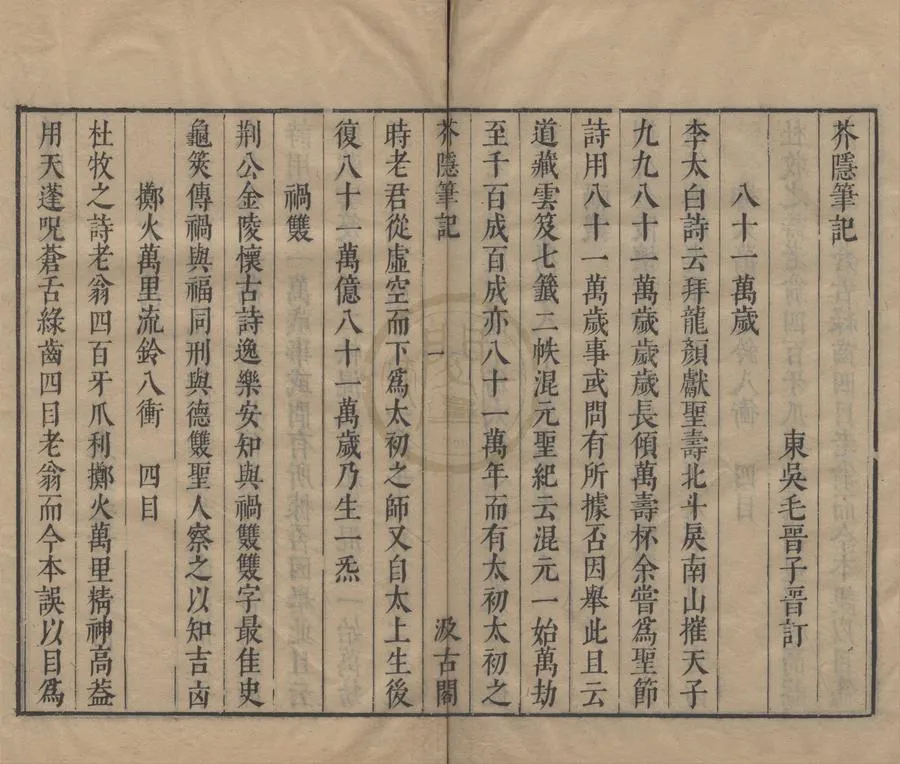 芥隱筆記
東吳毛晉子晉訂
八十一萬歲
李太白詩云拜龍顏獻聖壽北斗戾南山摧天子
九九八十一萬歲歲歲長傾萬壽杯余嘗爲聖節
詩用八十一萬歲事或問有所據否因舉此且云
道藏雲笈七籤二帙混元聖紀云混元一始萬劫
至千百成百成亦八十一萬年而有太初太初之
芥隱筆記 一 汲古閣
時老君從虛空而下爲太初之師又自太上生後
復八十一萬億八十一萬歲乃生一炁
禍雙
荆公金陵懷古詩逸樂安知與禍雙雙字最佳史
龜筴傳禍與福同刑與德雙聖人察之以知吉凶
擲火萬里流鈴八衝 四目
杜牧之詩老翁四百牙爪利擲火萬里精神高葢
用天蓬呪蒼舌綠齒四目老翁而今本誤以目爲